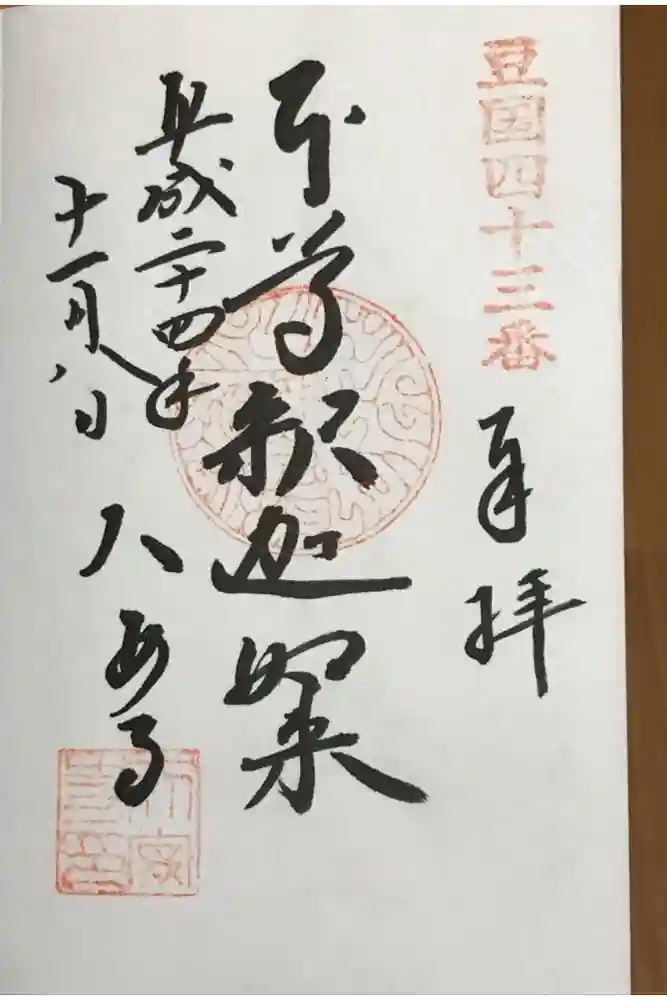 豆国四十三番
奉拝
本尊釈迦如来
平成二十四年
十一月八日
大安寺